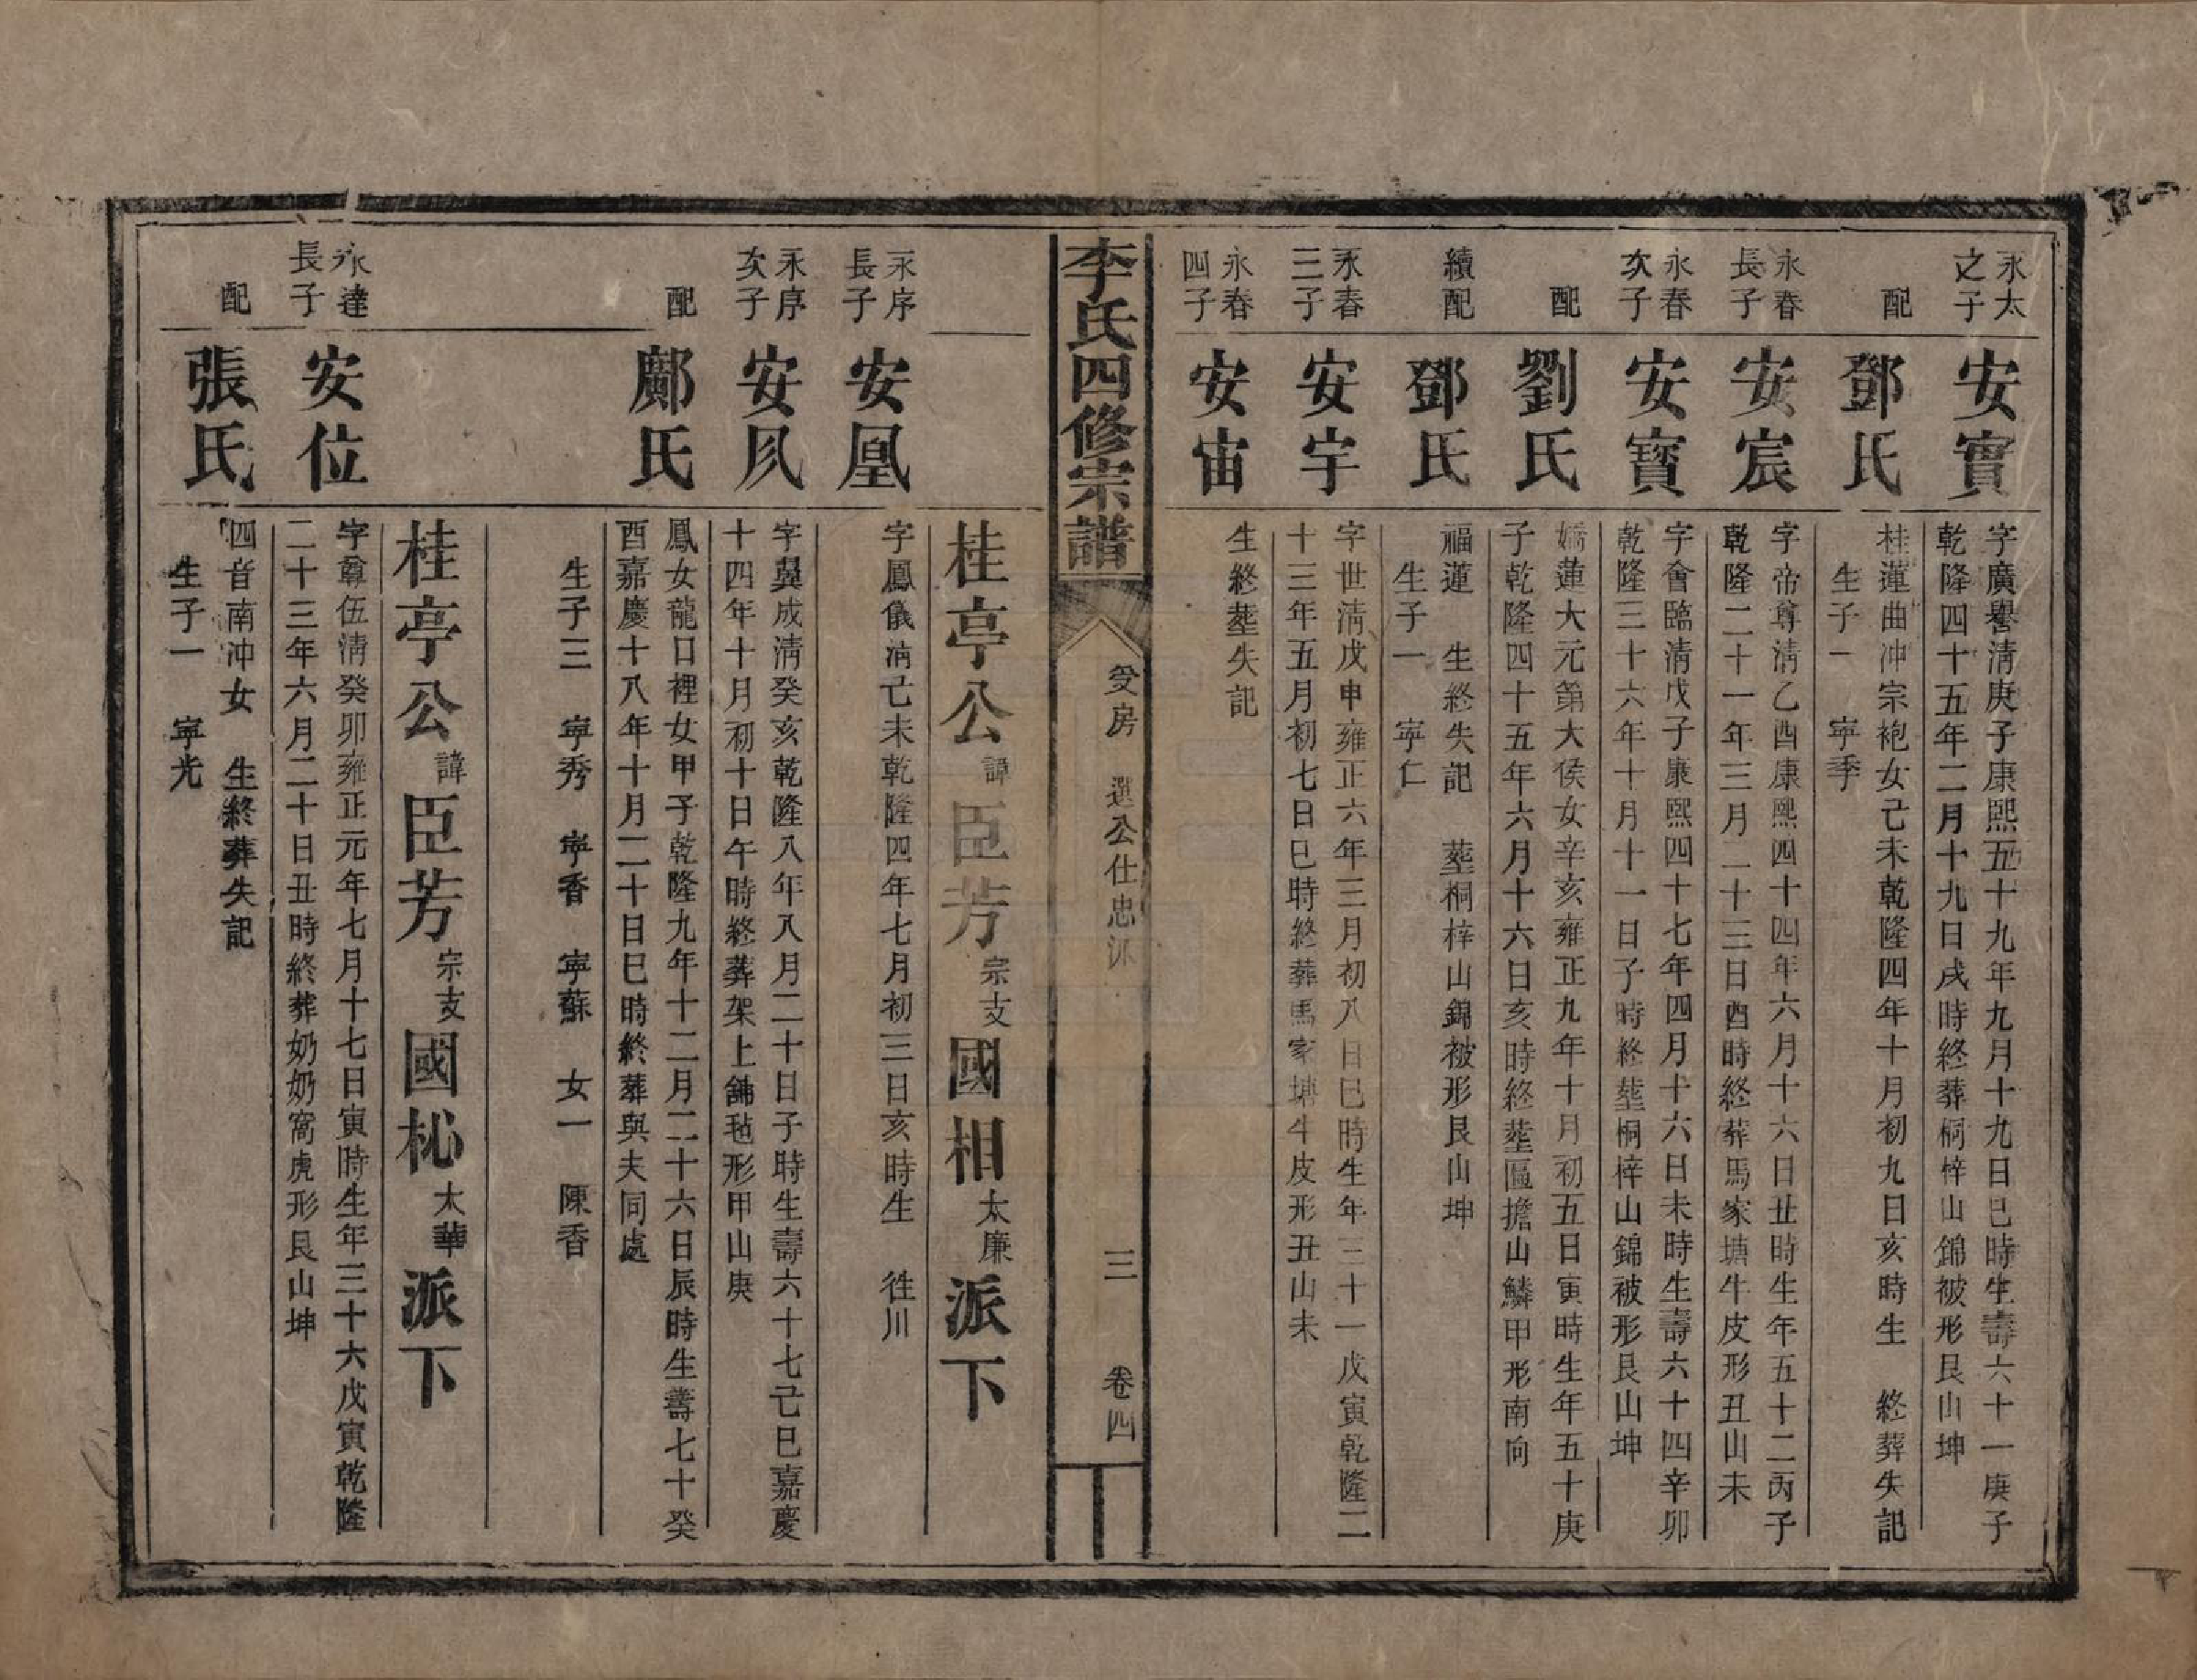 永太
之子
安實
字廣譽淸庚子康熙五十九年九月十九日巳時生壽六十一庚子
乾隆四十五年二月十九日戌時終葬桐梓山錦被形艮山坤
配
鄧氏
桂蓮曲冲宗袍女己未乾隆四年十月初九日亥時生　終葬失記
生子一　寧季
永春
長子
安宸
字帝尊淸乙酉康熙四十四年六月十六日丑時生年五十二丙子
乾隆二十一年三月二十三日酉時終葬馬家塘牛皮形丑山未
永春
次子
安寶
字會臨淸戊子康熙四十七年四月十六日未時生壽六十四辛卯
乾隆三十六年十月十一日子時終塟桐梓山錦被形艮山坤
配
劉氏
嬌蓮大元第大侯女辛亥雍正九年十月初五日寅時生年五十庚
子乾隆四十五年六月十六日亥時終塟區擔山鱗甲形南向
續配
鄧氏
福蓮　生終失記　塟桐梓山錦被形艮山坤
生子一　寧仁
永春
三子
安宇
字世淸戊申雍正六年三月初八日巳時生年三十一戊寅乾隆二
十三年五月初七日巳時終葬馬家塘牛皮形丑山未
永春
四子
安宙
生終塟失記
李氏四修宗譜
受房　選公仕忠派
三
卷四
桂亭公諱臣芳宗支國相太廉派下
永序
長子
安凰
字鳳儀淸己未乾隆四年七月初三日亥時生　徃川
永序
次子
安凤
字翼成淸癸亥乾隆八年八月二十日子時生壽六十七己巳嘉慶
十四年十月初十日午時終葬架上舖毡形甲山庚
配
鄺氏
鳳女龍口裡女甲子乾隆九年十二月二十六日辰時生壽七十癸
酉嘉慶十八年十月二十日巳時終葬與夫同處
生子三　寧秀　寧香　寧蘇　女一　陳香
桂亭公諱臣芳宗支國柲太華派下
永達
長子
安位
字尊伍淸癸卯雍正元年七月十七日寅時生年三十六戊寅乾隆
二十三年六月二十日丑時終葬奶奶窩虎形艮山坤
配
張氏
四音南冲女　生終葬失記
生子一　寧光